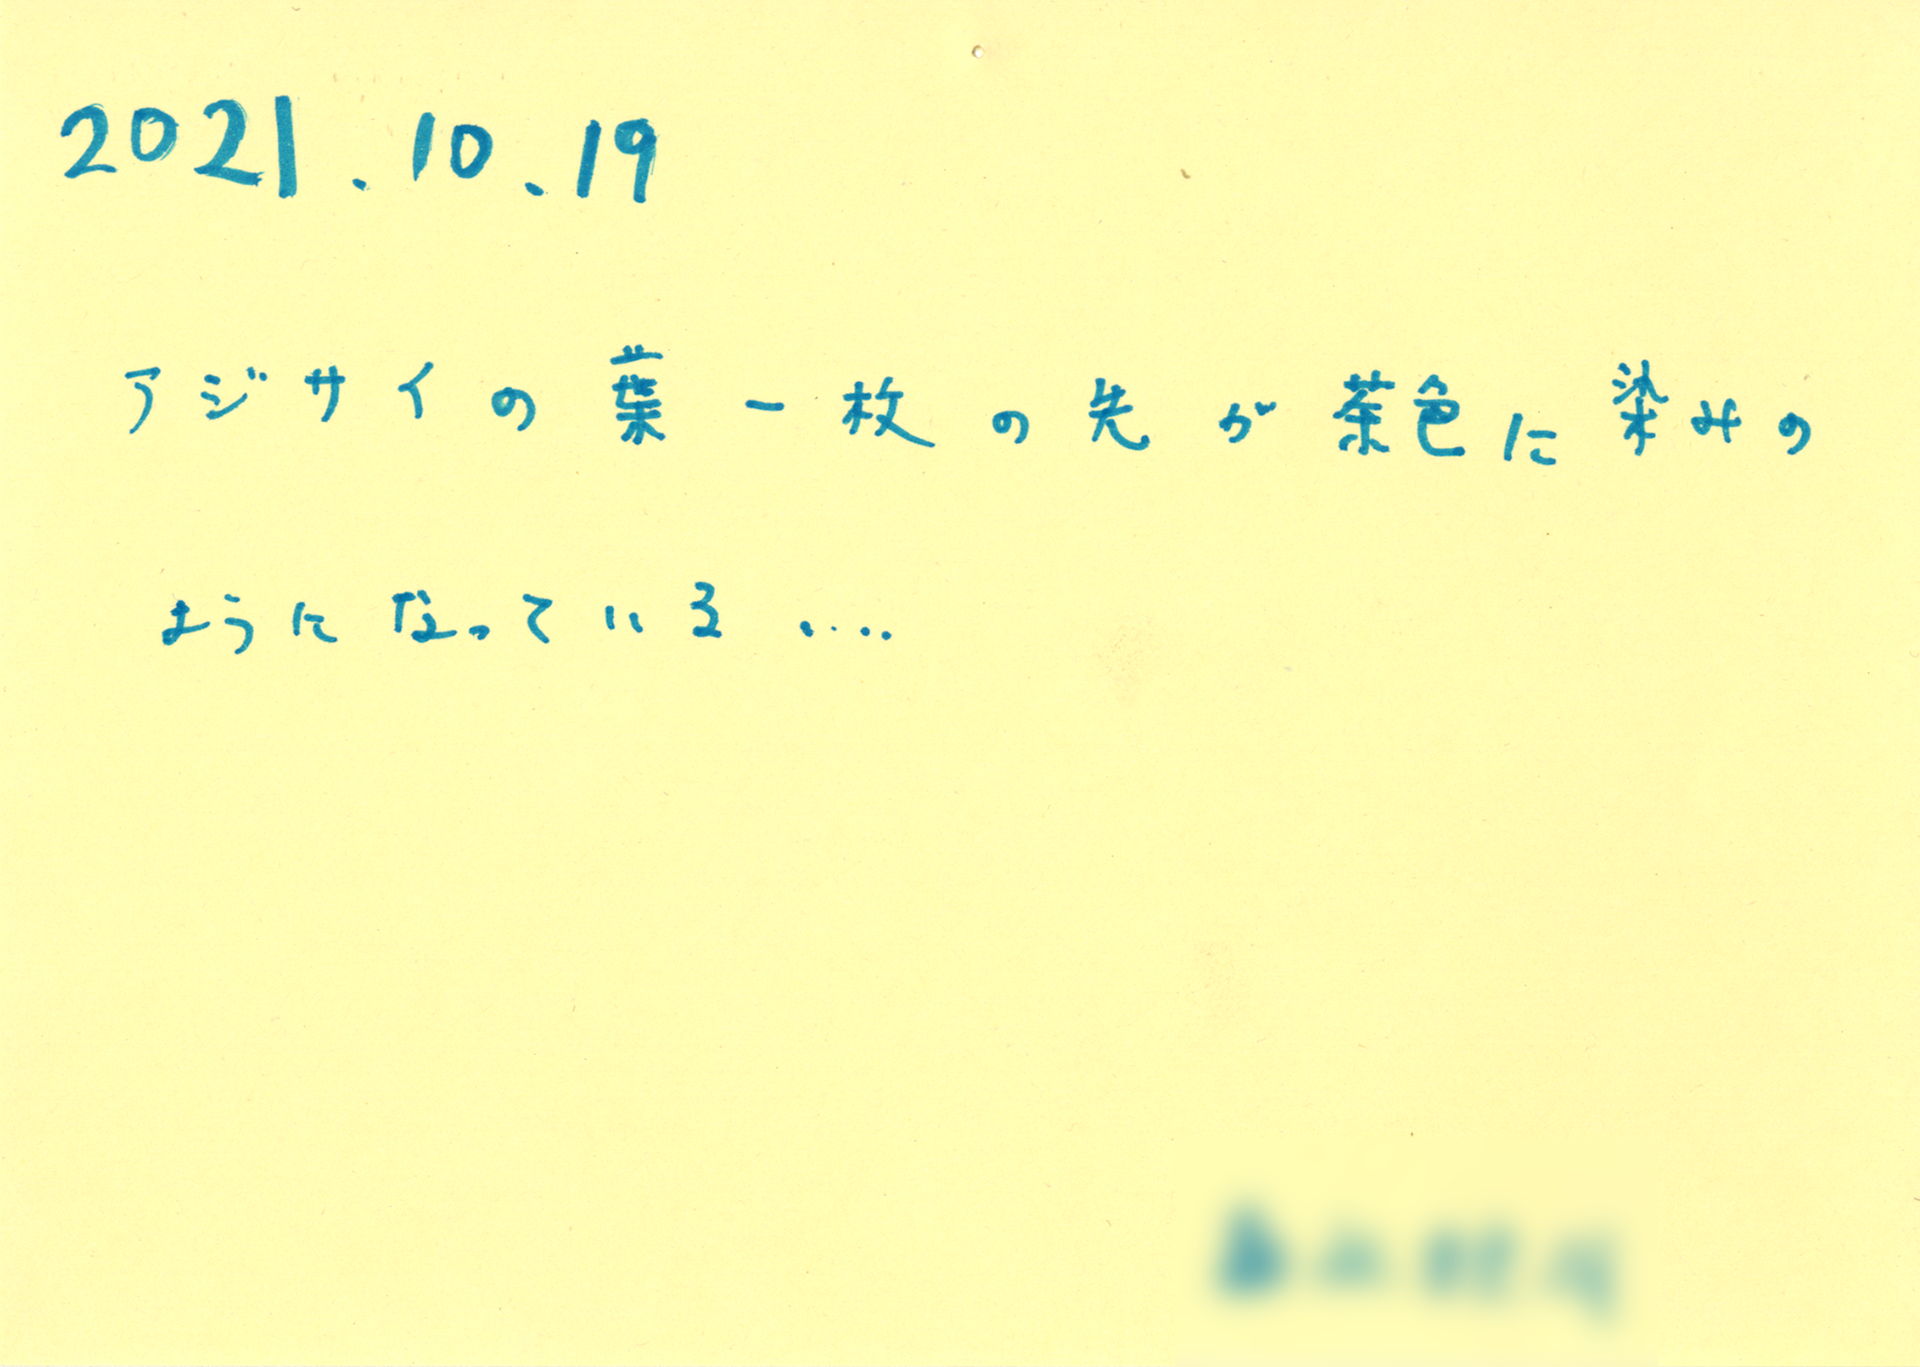 2021.10.19
アジサイの葉一枚の先が茶色に染みの
ようになっている....